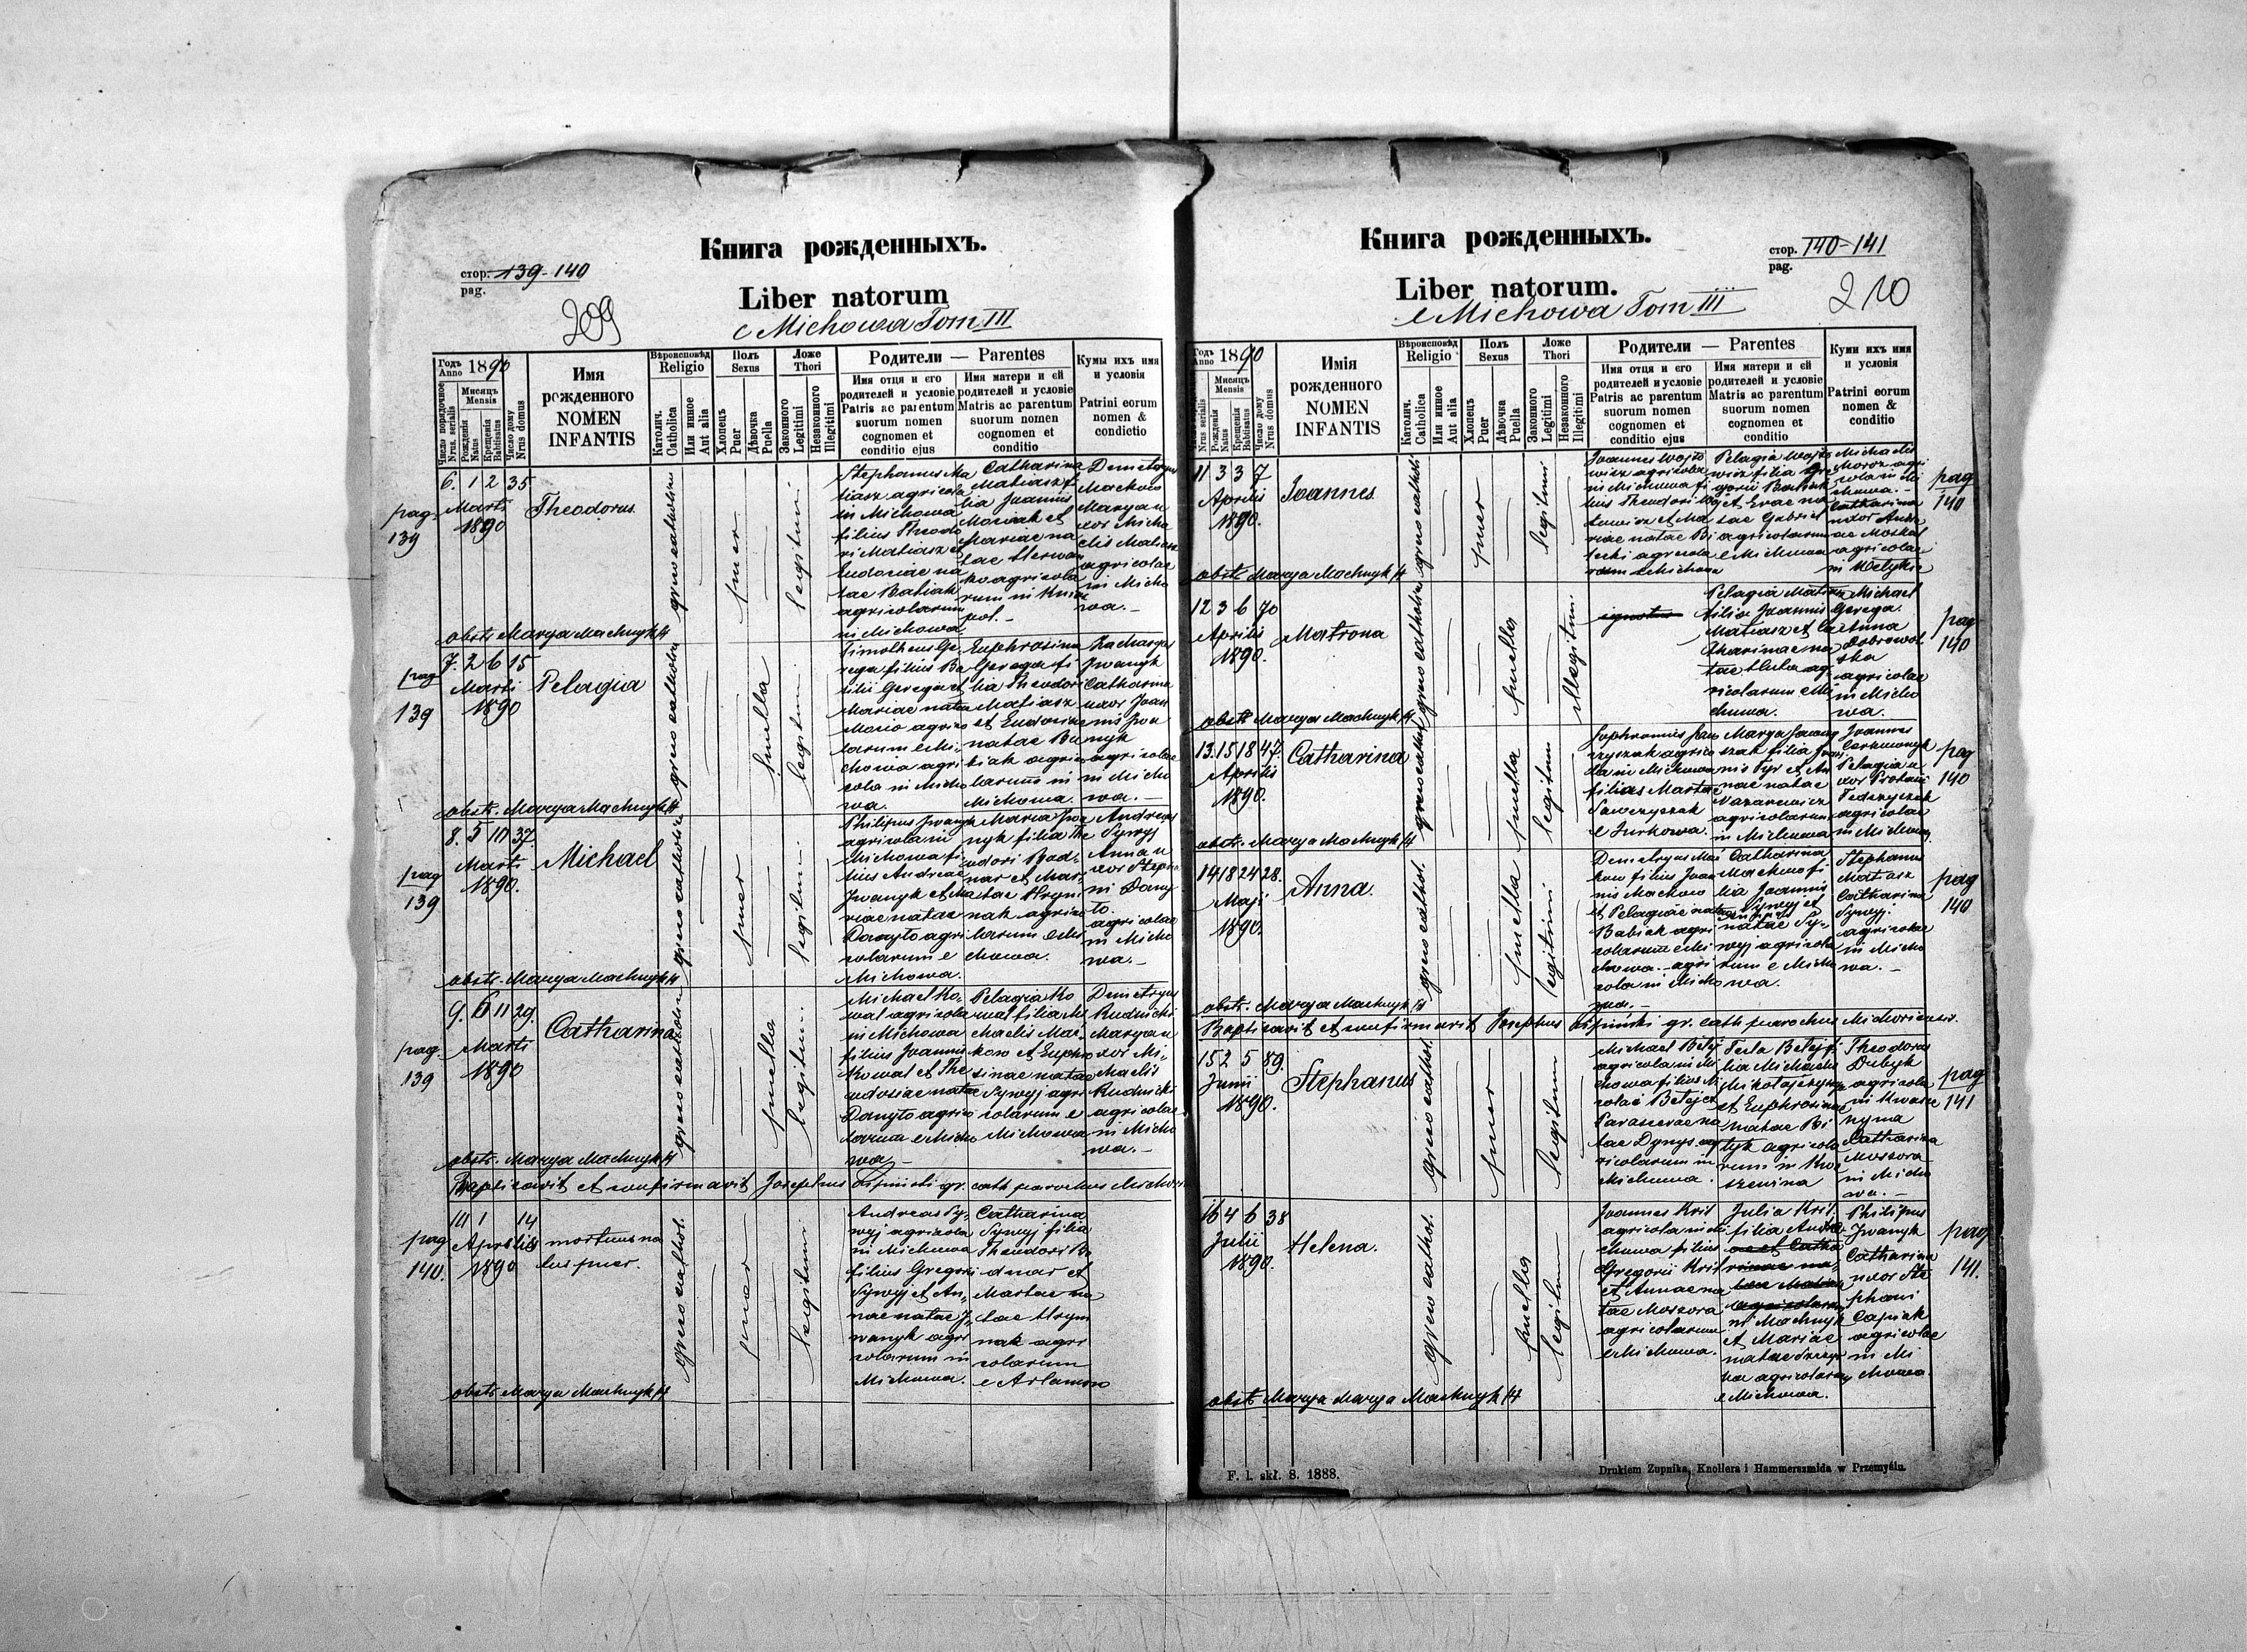 Книга рожденныхъ.
стор. 139-140
pag.
Liber natorum
209
e Michowa Tom III
Годъ 1890
Anno
Число порядочное
Nrus. serialis
Мисяцъ
Mensis
Рожденія
Natus
Крещенія
Babtisatus
Число дому
Nrus domus
Имя
рожденного
NOMEN
INFANTIS
Вѣроисповѣд
Religio
Католич.
Catholica
Или инное
Aut alia
Полъ
Sexus
Хлопецъ
Puer
Дѣвочка
Puella
Ложе
Thori
Законного
Legitimi
Незаконного
Illegitimi
Родители — Parentes
Имя отця и его
родителей и условіе
Patris ac parentum
suorum nomen
cognomen et
conditio ejus
Имя матери и ей
родителей и условіе
Matris ac parentum
suorum nomen
cognomen et
conditio
Кумы ихъ имя
и условія
Patrini eorum
nomen &
condictio
pag.
139
6. 1 2 35
Marti
1890
Theodorus.
greco catholica
puer
legitimi
Stephanus Ma
tiasz agricola
in Michowa
filius Theodo
ri Matiasz et
Eudociae na
tae Babiak
agricolarum
in Michowa
Catharina
Matiasz fi
lia Joannis
Moriak et
Mariae na
tae
ko agricola
rum in Knia
pol. -
Demetryus
Mackow
Marya u
xor Micha
elis Matiasz
agricolae
in Micho
wa. -
obstr. Marya Machnyk
pag
139
7. 2 6 15
Marti
1890
Pelagia
greco catholica
puella
legitimi
Timotheus Ge
rega filius Ba
silii Gerega et
Mariae natae
Mocio agrico
larum e Mi
chowa agri
cola in Micho
wa.
Euphrosina
Gerega fi
lia Theodori
Matiasz
et Eudociae
natae Ba
biak agrico
larum in
Michowa.
Zacharyas
Jwanyk
Catharina
uxor Joan
nis Jwa
nyk
agricolae
in Micho
wa. -
obstr. Marya Machnyk
pag
139
8. 5 11 37.
Marti
1890.
Michael
greco catholica
puer
legitimi
Philipus Jwanyk
agricola in
Michowa fi
lius Andreae
Jwanyk et Ma
riae natae
Danyto agri
colarum e
Michowa.
Maria Jwa
nyk filia The
odori Bod
nar et Mar
tae Hryni
nak agrico
larum e Mi
chowa.
Andreas
Sywyj
Anna u
xor Stepha
ni Dany
to.
agricolae
in Micho
wa. -
obstr. Marya Machnyk
pag.
139
9. 6 11 29.
Marti
1890
Catharina
greco catholica
puella
legitimi
Michael Ko
wal agricola
in Michowa
filius Joannis
Kowal et The
odosiae natae
Danyto agrico
larum e Micho
wa -
Pelagia Ko
wal filia Mi
chaelis Mać
kow et Euphro
sinae natae
Sywyj agri
colarum e
Michowa
Demetryus
Rudnicki
Marya u
xor Mi
chaelis
Rudnicki
agricolae
in Micho
wa. -
obstr. Marya Machnyk
Baptisavit et confirmavit Josephus Lipiński gr. cath parochus Michov
pag
140.
10 1 14
Aprilis
1890
mortuus na
tus puer.
greco cathol.
puer
legitimi
Andreas Sy
wyj agricola
in Michowa
filius Gregorii
Sywyj et An
nae natae J
wanyk agri
colarum in
Michowa.
Catharina
Sywyj filia
Theodori Bo
dnar et
Martae na
tae Hryni
nak agri
colarum
e Arlamow
obstr. Marya Machnyk
Книга рожденныхъ.
стор. 140-141
pag.
Liber natorum.
210
e Michowa Tom III
Годъ 1890
Anno
Nrus serialis
Мисяцъ
Mensis
Рожденія
Natus
Крещенія
Babtisatus
Число дому
Nrus domus
Имія
рожденного
NOMEN
INFANTIS
Вѣроисповѣд
Religio
Католич.
Catholica
Или инное
Aut alia
Полъ
Sexus
Хлопецъ
Puer
Дѣвочка
Puella
Ложе
Thori
Законного
Legitimi
Незаконного
Illegitimi
Родители — Parentes
Имя отця и его
родителей и условіе
Patris ac parentum
suorum nomen
cognomen et
conditio ejus
Имя матери и ей
родителей и условіе
Matris ac parentum
suorum nomen
cognomen et
conditio
Куми ихъ имя
и условія
Patrini eorum
nomen &
conditio
11 3 3 7
Aprilis
1890.
Joannes
greco cathol.
puer
legitimi
Joannes Wojto
wicz agricola
in Michowa fi
lius Theodori Woj
towicz et Ma
riae natae Bi
lecki agricola
rum e Michowa
Pelagia Wojto
wicz filia Gre
gorii Babiak
et Evae na
tae Gabriel
agricolarum
e Michowa
Michaelis
Moroz agri
cola in Mi
chowa. -
Catharina
uxor Andre
ae Moskal
agricolae
in
pag
140
obstr. Marya Machnyk
12 3 6 70
Aprilis
1890.
Matrona
greco catholica
puella
illegitimi
ignotus
Pelagia Matiasz
filia Joannis
Matiasz et Ca
tharinae na
tae Huta ag
ricolarum e Mi
chowa.
Michael
Gerega.
Anna
Dobrowol
ska
agricolae
in Micho
wa.
pag
140
obstr. Marya Machnyk
13. 15 18 47.
Aprilis
1890.
Catharina
greco cathol
puella
legitimi
Sophronius
agrico
la in Michowa
filius Martae
Sawczyszak
e Jurkowa.
Marya
szak filia Joan
nis Tyr et An
nae natae
Nazarewicz
agricolarum
in Michowa
Joannes
Pelagia u
xor
Fedczyszak
agricolae
in Michowa
pag
140
obstr. Marya Machnyk
14 18 24 28.
Maji
1890.
Anna.
greco cathol.
puella
legitimi
Demetryus Mać
kow filius Joan
nis Mackow
et Pelagiae natae
Babiak agri
colarum e Mi
chowa. - agri
cola in Micho
wa. -
Catharina
Mackow fi
lia Joannis
Sywyj et
natae Sy
wyj agricola
rum e Micho
wa.
Stephanus
Matiasz
Catharina
Sywyj.
agricolae
in Micho
wa. -
pag
140
obstr. Marya Machnyk
Baptisavit et confirmavit Josephus Lipiński gr. cath parochus Michoviensis.
15 2 5 89.
Junii
1890.
Stephanus
greco cathol.
puer
legitimi
Michael Betej
agricola in Mi
chowa filius Ni
colai Betej et
Parascevae na
tae Dynys ag
ricolarum in
Michowa.
Tecla Betej fi
lia Michaelis
et Euphrosinae
natae Bi
tyk agricola
rum in Kos
szenina
Theodorus
Dubyk
agricola
in Kwasze
nyna
Catharina
Moszora
in Micho
wa. -
pag
141
16 4 6 38
Julii
1890.
Helena.
greco cathol.
puella
legitimi
Joannes Krit
agricola in Mi
chowa filius
Gregorii Krit
et Annae na
tae Moszora
agricolarum
e Michowa.
Julia Krit
filia Andre
ae et Catha
rinae na
tae Matiasz
agricolarum
Machnyk
et Mariae
natae
agricolarum
e Michowa.
Philipus
Jwanyk
Catharina
uxor Ste
phani
Capiak
agricolae
in Mi
chowa.
pag
141.
obstr. Marya Marya Machnyk
F. l. skł. 8. 1888.
Drukiem Żupnika, Knollera i Hammerszmida w Przemyślu.